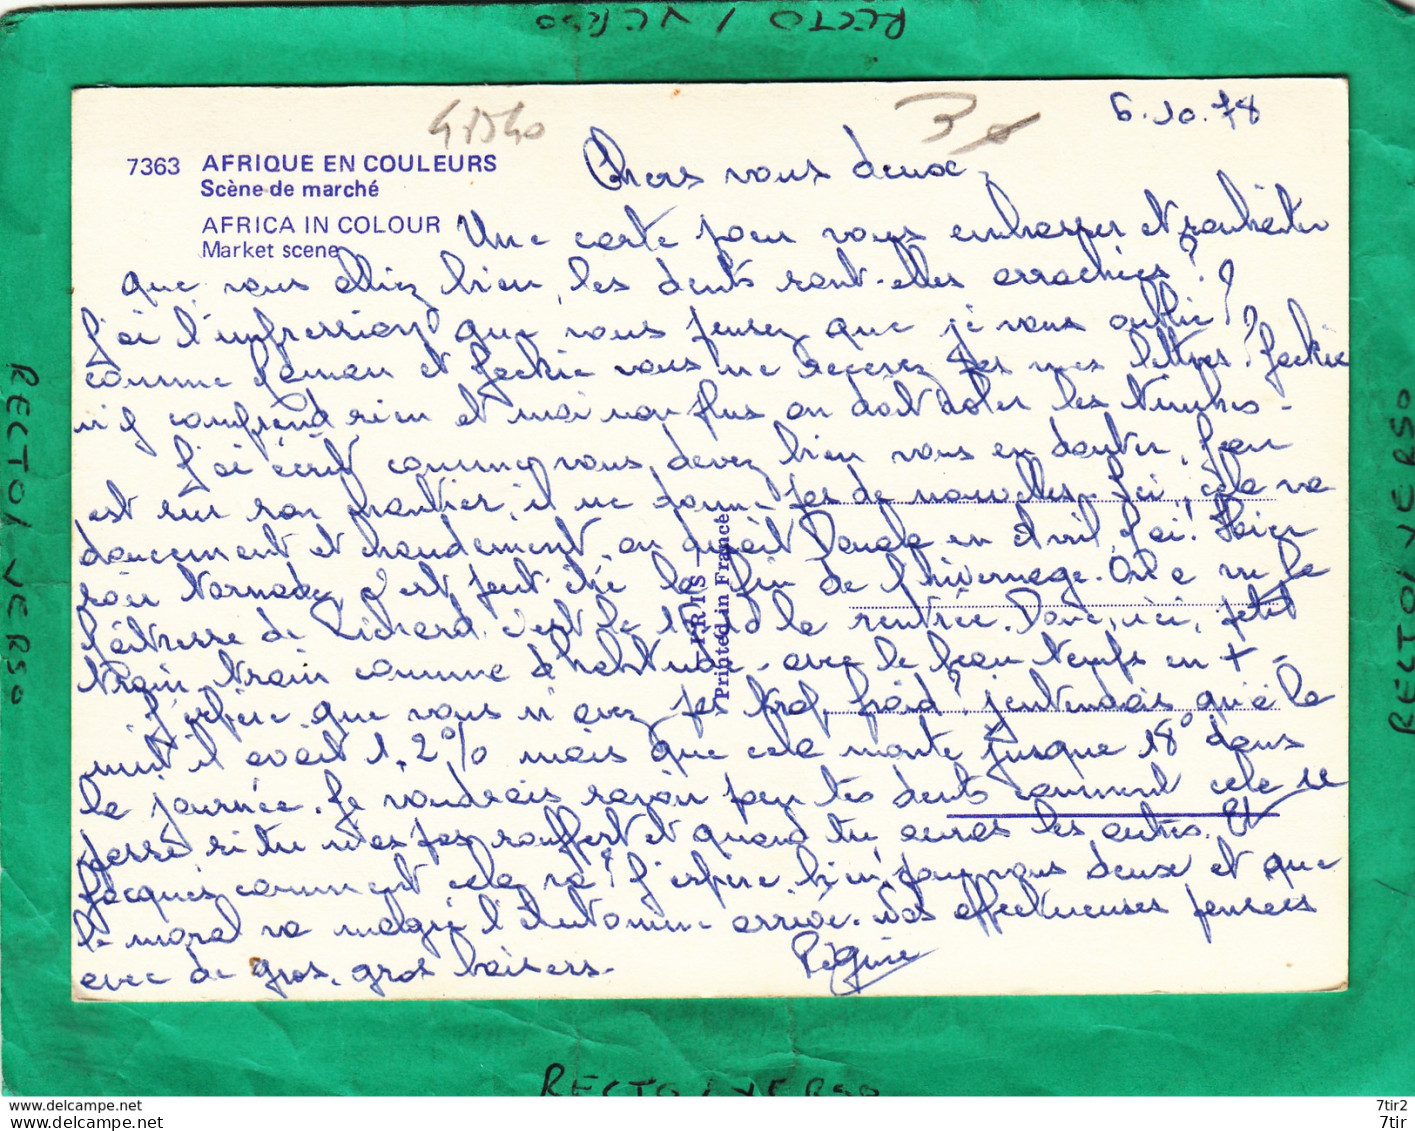 RECTO / VERSO
6.10.78
7363 AFRIQUE EN COULEURS
Scène de marché
AFRICA IN COLOUR
Market scene
Chers vous deux,
Une carte pour vous embrasser et souhaiter
que vous alliez bien, les dents sont-elles arrachées ?
J'ai l'impression que vous pensez que je vous oublie ?
comme Maman et Jackie vous ne recevez pas mes lettres ? Jackie
n'y comprend rien et moi non plus on doit voler les timbres -
J'ai écrit comme vous devez bien vous en douter, Jean
est sur son chantier, il ne donne pas de nouvelles. Ici, cela va
doucement et chaudement, on dirait Douala en Avril, si ! Hier
soir tornade, c'est peut-être la fin de l'hivernage. On a vu la
Maîtresse de Richard c'est le la rentrée. Donc, ici, petit
train, train comme d'habitude - avec le beau temps en + -
J'espère que vous n'avez pas trop froid ? j'entendais qu'à la
nuit il avait 1, 2% mais que cela monte jusque 18° dans
la journée. Je voudrais savoir pour tes dents comment cela se
passe si tu n'as pas souffert et quand tu auras les autres. Et
Jacques comment cela va ? J'espère bien pour vous deux et que
le moral va malgré l'Automne arrivé. Nos affectueuses pensées
avec de gros, gros baisers.
IRIS —
Printed in France
RECTO / VERSO
RECTO / VERSO
RECTO / VERSO
www.delcampe.net
www.delcampe.net
7tir2
7tir